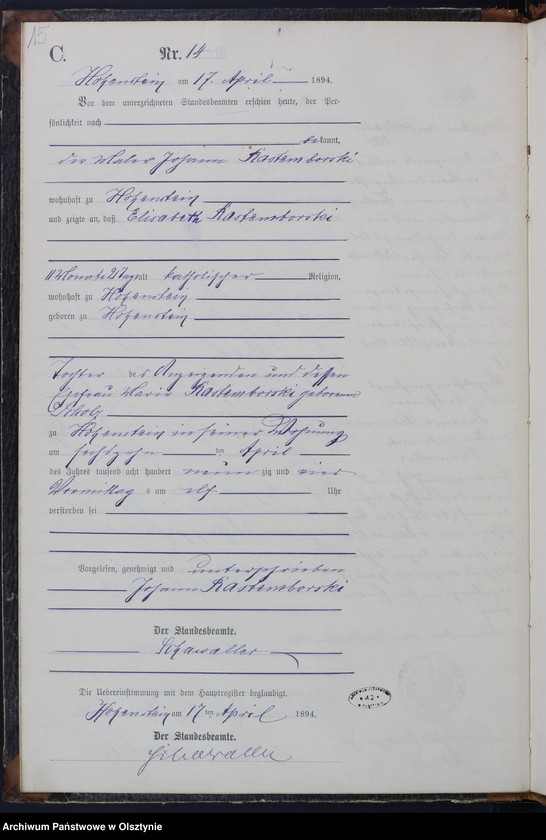 15
C.
Nr. 14
Hohenstein am 17. April 1894.
Vor dem unterzeichneten Standesbeamten erschien heute, der Per-
sönlichkeit nach
bekannt,
der Maler Johann Rastemborski
wohnhaft zu Hohenstein
und zeigte an, daß Elisabeth Rastemborski
11 Monate 21 Tage alt katholischer Religion,
wohnhaft zu Hohenstein
geboren zu Hohenstein
Tochter des Anzeigenden und dessen
Ehefrau Marie Rastemborski geborenen
Scholz
zu Hohenstein in seiner Wohnung
am sechszehn ten April
des Jahres tausend acht hundert neun zig und vier
Vormittag s um elf Uhr
verstorben sei
Vorgelesen, genehmigt und unterschrieben
Johann Rastemborski
Der Standesbeamte.
Die Uebereinstimmung mit dem Hauptregister beglaubigt.
Hohenstein am 17 ten April 1894.
Der Standesbeamte.
Archiwum Państwowe w Olsztynie